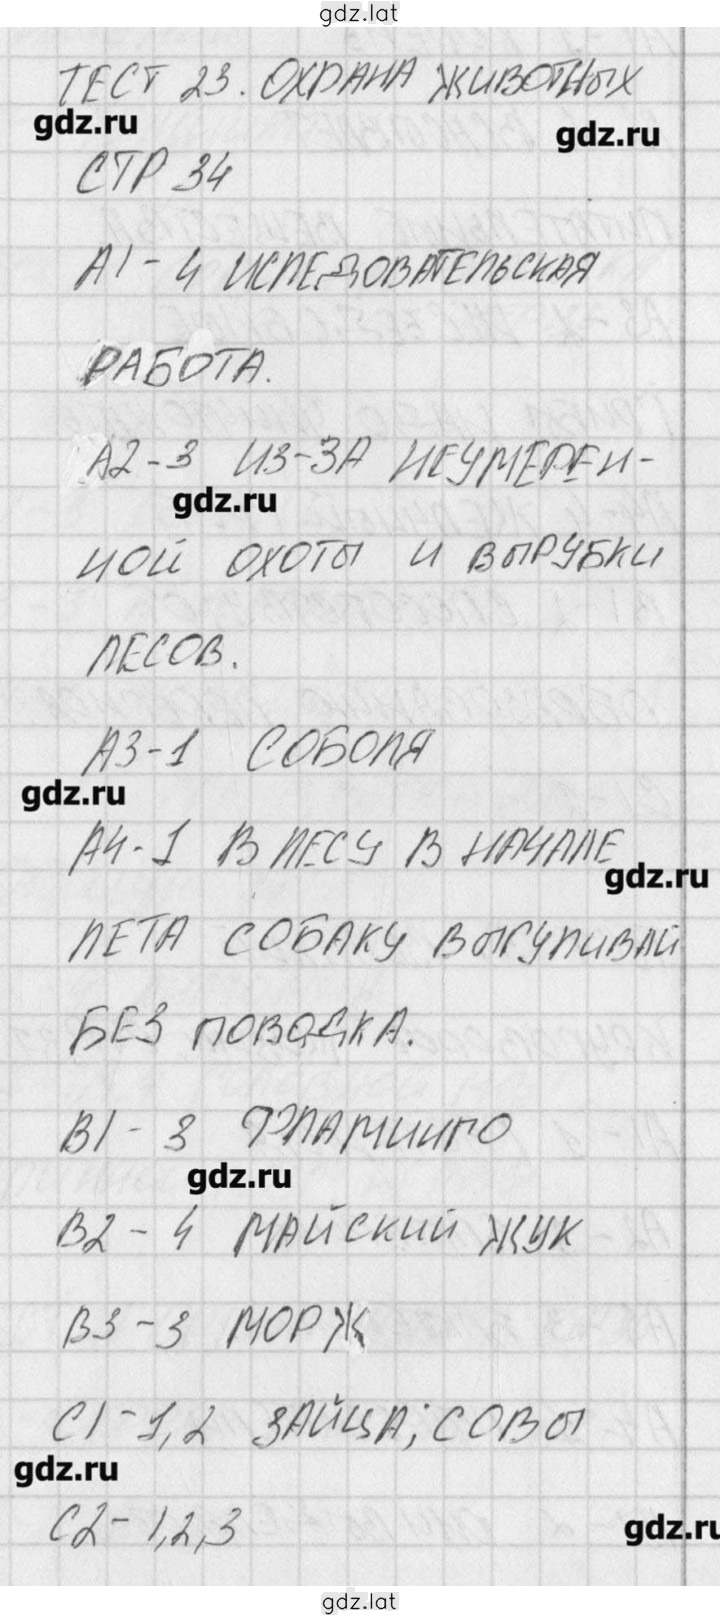 gdz.lat
ТЕСТ 23. ОХРАНА ЖИВОТНЫХ
gdz.ru
gdz.ru
СТР 34
А1-4 ИСЛЕДОВАТЕЛЬСКАЯ
РАБОТА.
А2-3 ИЗ-ЗА НЕУМЕРЕН-
gdz.ru
НОЙ ОХОТЫ И ВЫРУБКИ
ЛЕСОВ.
А3-1 СОБОЛЯ
gdz.ru
А4-1 В ЛЕСУ В НАЧАЛЕ
gdz.ru
ЛЕТА СОБАКУ ВЫГУЛИВАЙ
БЕЗ ПОВОДКА.
В1-3 ФЛАМИНГО
gdz.ru
В2-4 МАЙСКИЙ ЖУК
В3-3 МОРЖ
С1-1,2 ЗАЙЦА; СОВЫ
gdz.ru
С2-1,2,3
gdz.ru
gdz.lat